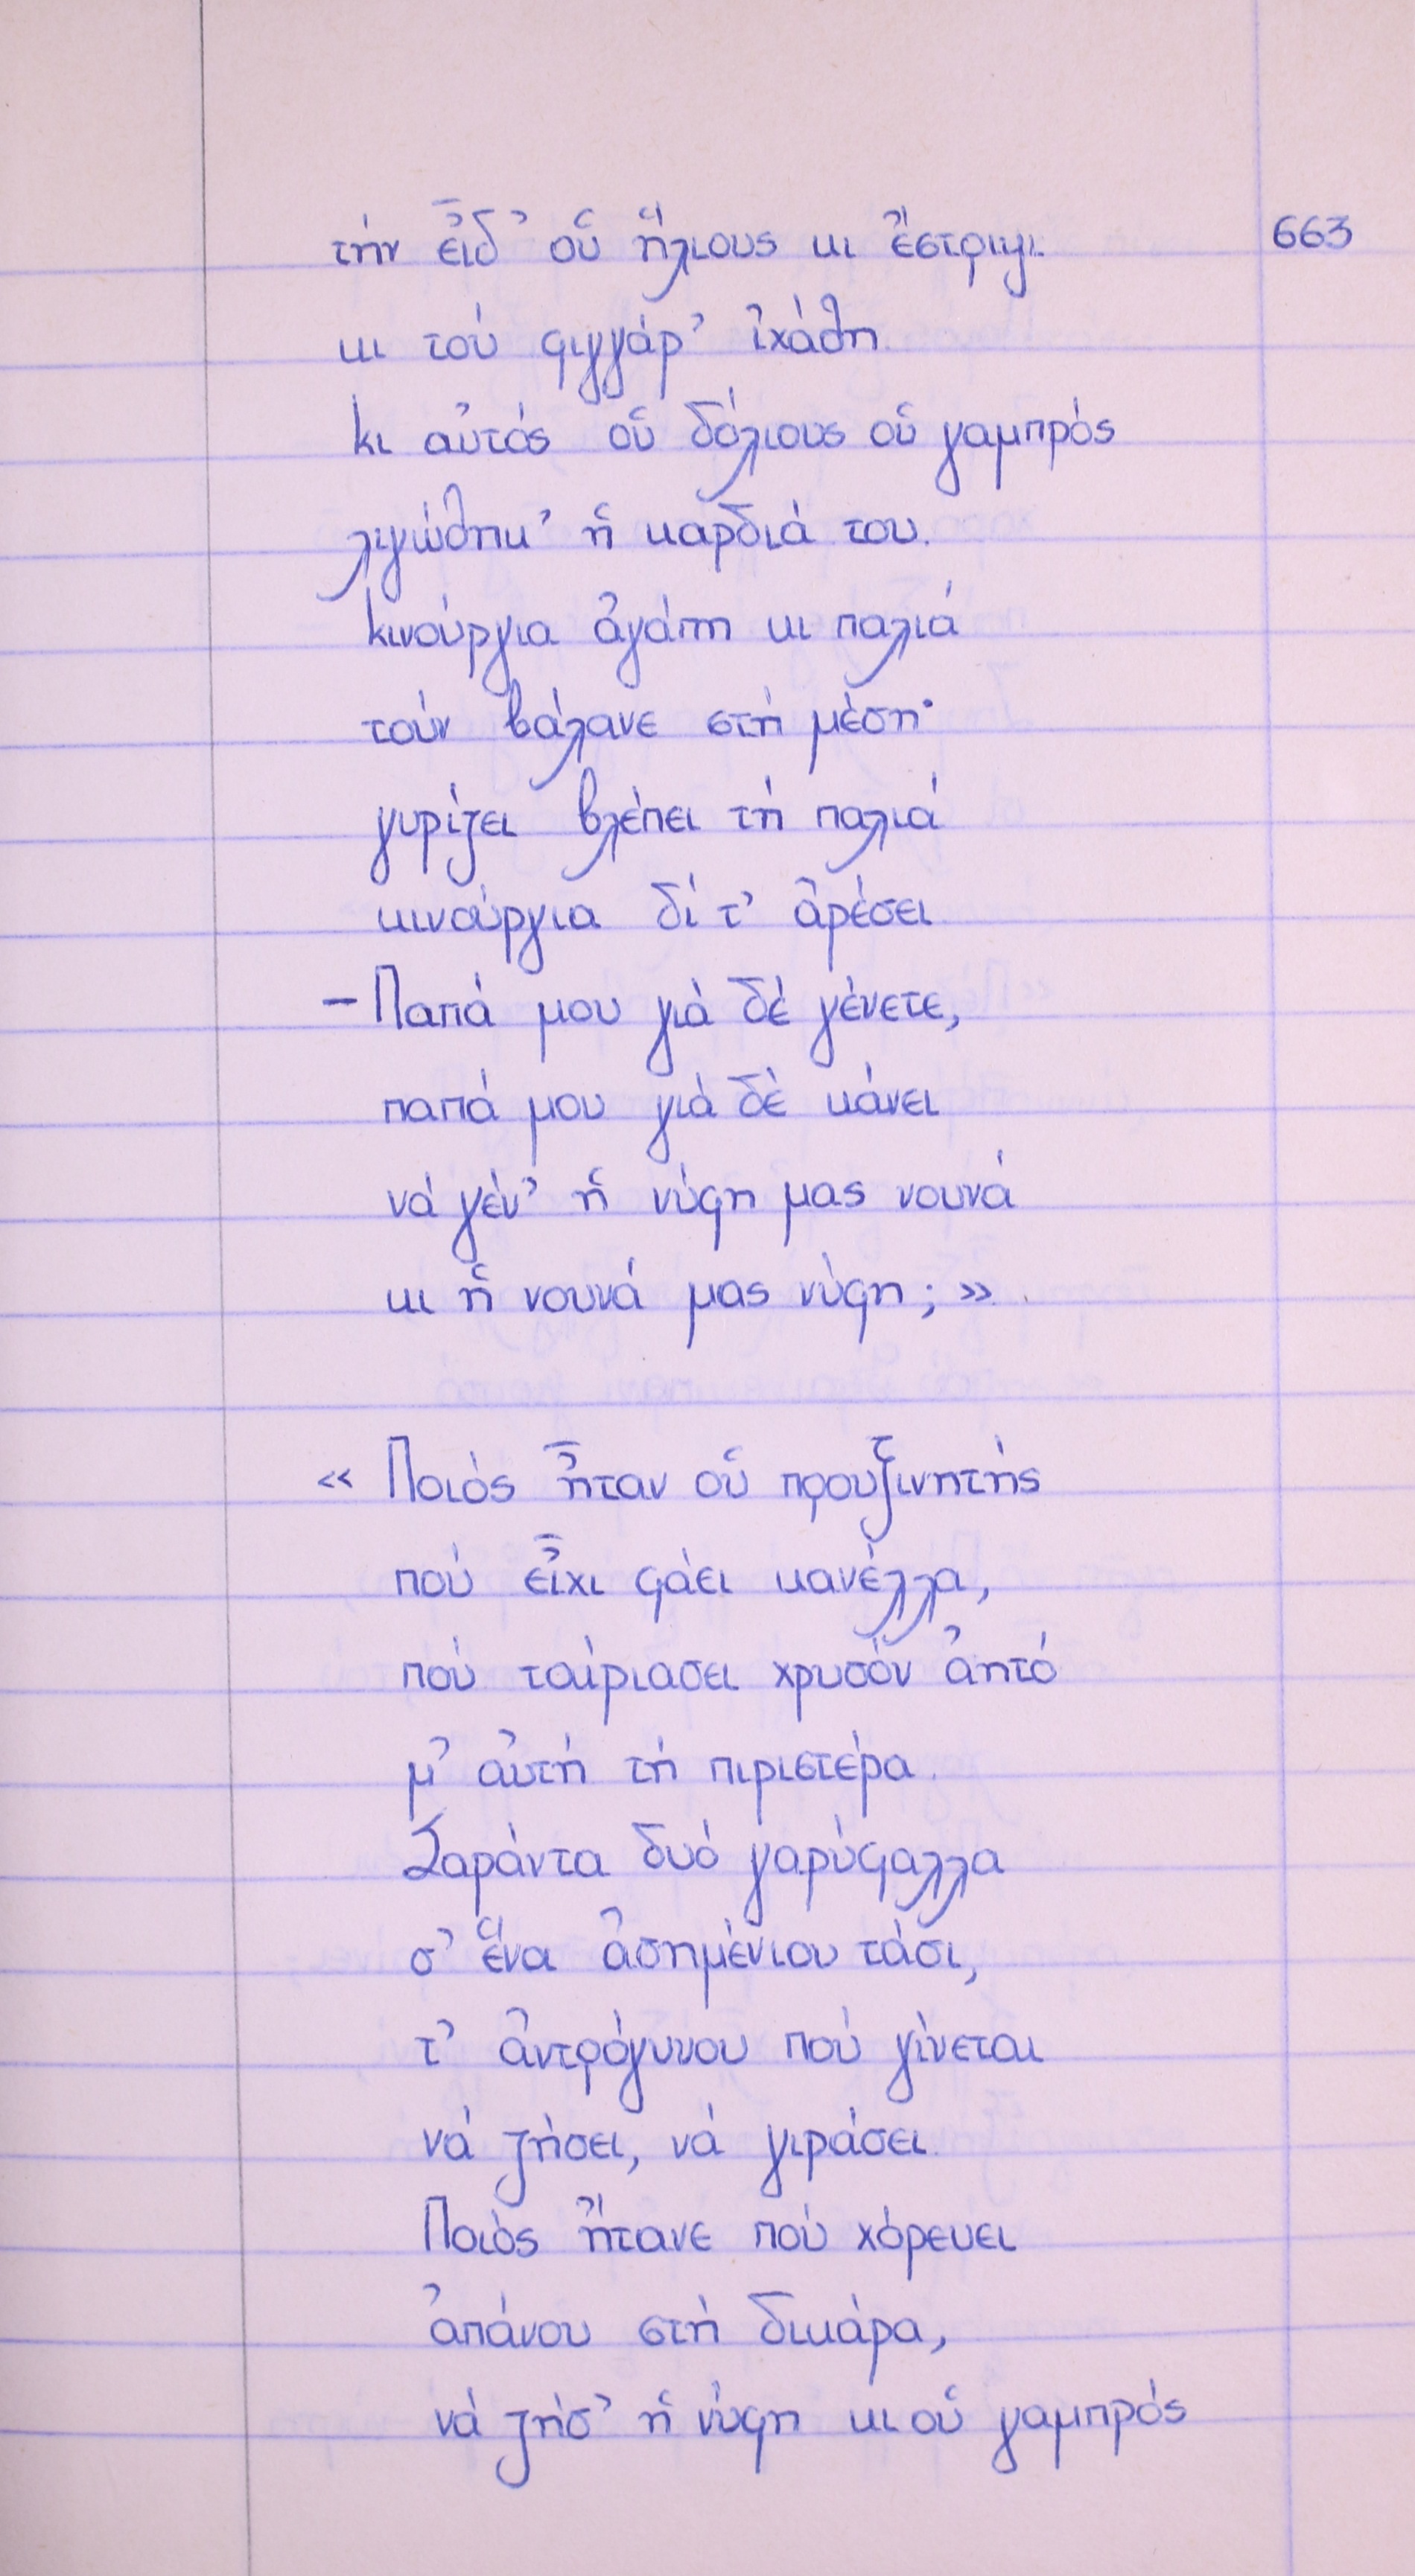 663
τήν εἶδ' οὑ ἥλιους κι ἔστριψι
κι τού φιγγάρ' ἰχάθη.
κι αὐτός οὑ δόλιους οὑ γαμπρός
λιγώθηκ' ἡ καρδιά του.
Κινούργια ἀγάπη κι παλιά
τούν βάλανε στή μέση·
γυρίζει βλέπει τή παλιά
κινούργια δέ τ' ἀρέσει.
- Παπά μου γιά δέ γένετε,
παπά μου γιά δέ κάνει
νά γέν' ἡ νύφη μας νουνά
κι ἡ νουνά μας νύφη; »
« Ποιός ἦταν οὑ προυξινητής
πού εἶχι φάει κανέλλα,
πού ταίριασει χρυσόν ἀητό
μ' αὐτή τή πιριστέρα.
Σαράντα δυό γαρύφαλλα
σ' ἕνα ἀσημένιου τάσι,
τ' ἀντρόγυνου πού γίνεται
νά ζήσει, νά γιράσει.
Ποιός ἤτανε πού χόρευει
ἀπάνου στή δικάρα,
νά ζήσ' ἡ νύφη κι οὑ γαμπρός